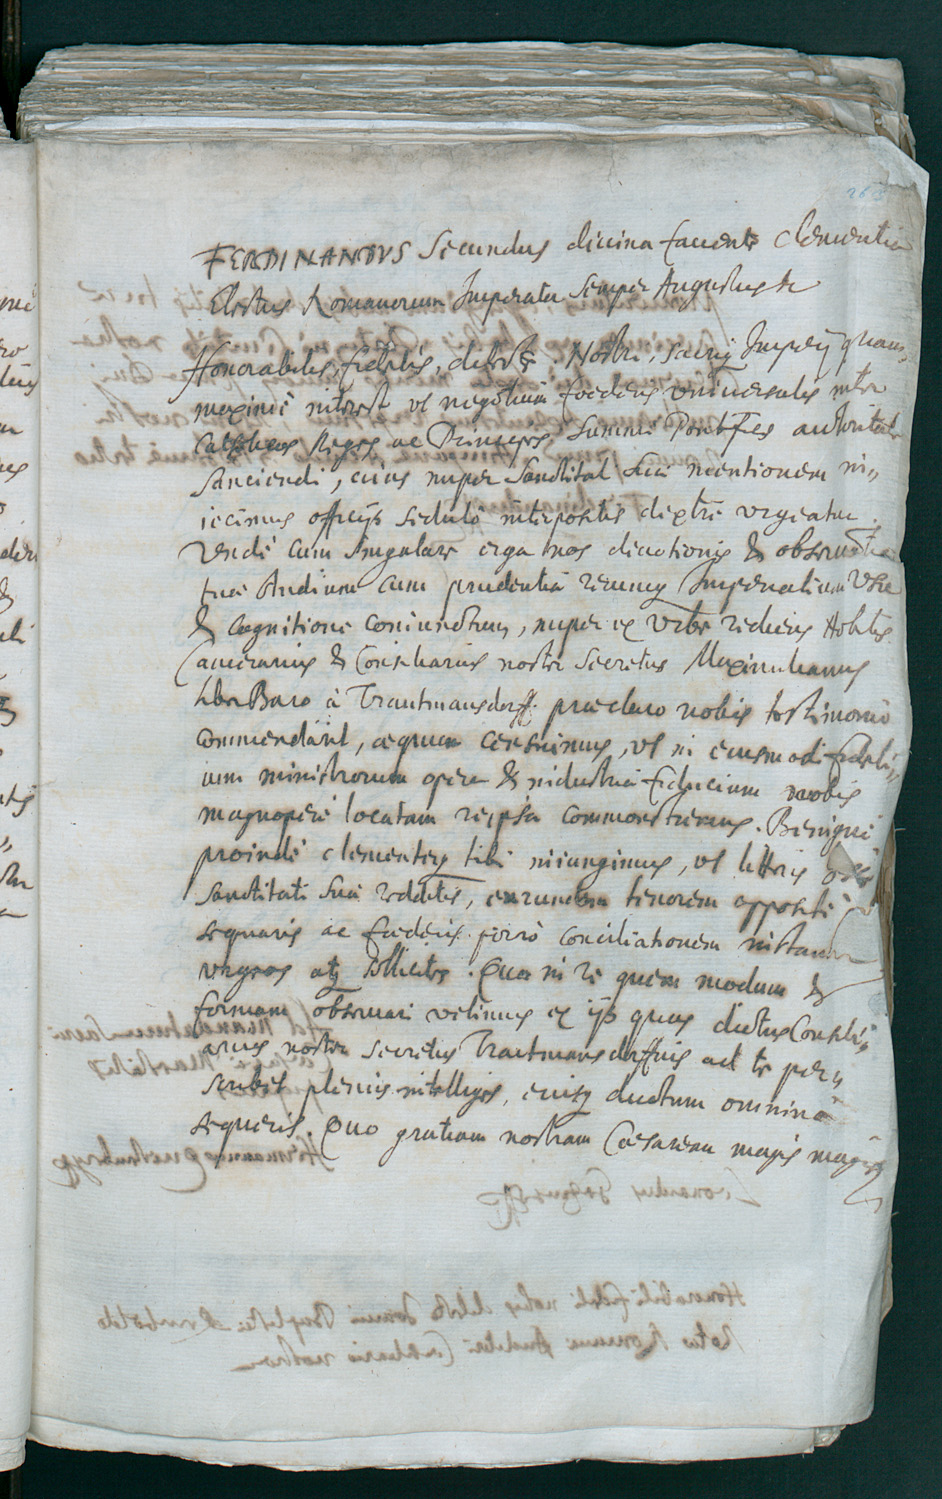 FERDINANDVS Secundus diuina fauente Clementia
Electus Romanorum Imperator semper Augustus &c
Honorabilis, fidelis, dilecte. Nostri, sacriq Imperij quam
maximè interest vt negotium foederis vniuersalis inter
Catholicos Reges ac Principes Summi Pontificis autoritate
sanciendi, cuius nuper Sanctitati Suae mentionem in„
iecimus officijs sedulò interpositis dextrè vrgeatur.
Vnde cum singulare erga nos deuotionis & obseruantiae
tuae studium cum prudentia rerumq Imperialium vsu
& cognitione coniunctum, nuper ex vrbe rediens Nobilis
Camerarius & Consiliarius noster Secretus Maximilianus
liber Baro à Trautmansdorff praeclaro nobis testimonio
commendârit, aequum censuimus, vt in eiusmodi fideli„
um ministrorum opera & industria fiduciam nobis
magnoperè locatam reipsa commonstremus. Benignè
proindè clementerq tibi iniungimus, vt litteris
Sanctitati Suae redditis, earundem tenorem appositè
sequaris ac foederis porrò conciliationem instanter
vrgeas atq sollicites. Qua in re quem modum &
formam obseruari velimus ex ijs quae dictus Consili„
arius noster Secretus Trautmansdorffius ad te per„
scribet plenius intelliges, eiusq ductum omninò
sequeris. Quo gratiam nostram Caesaream magis